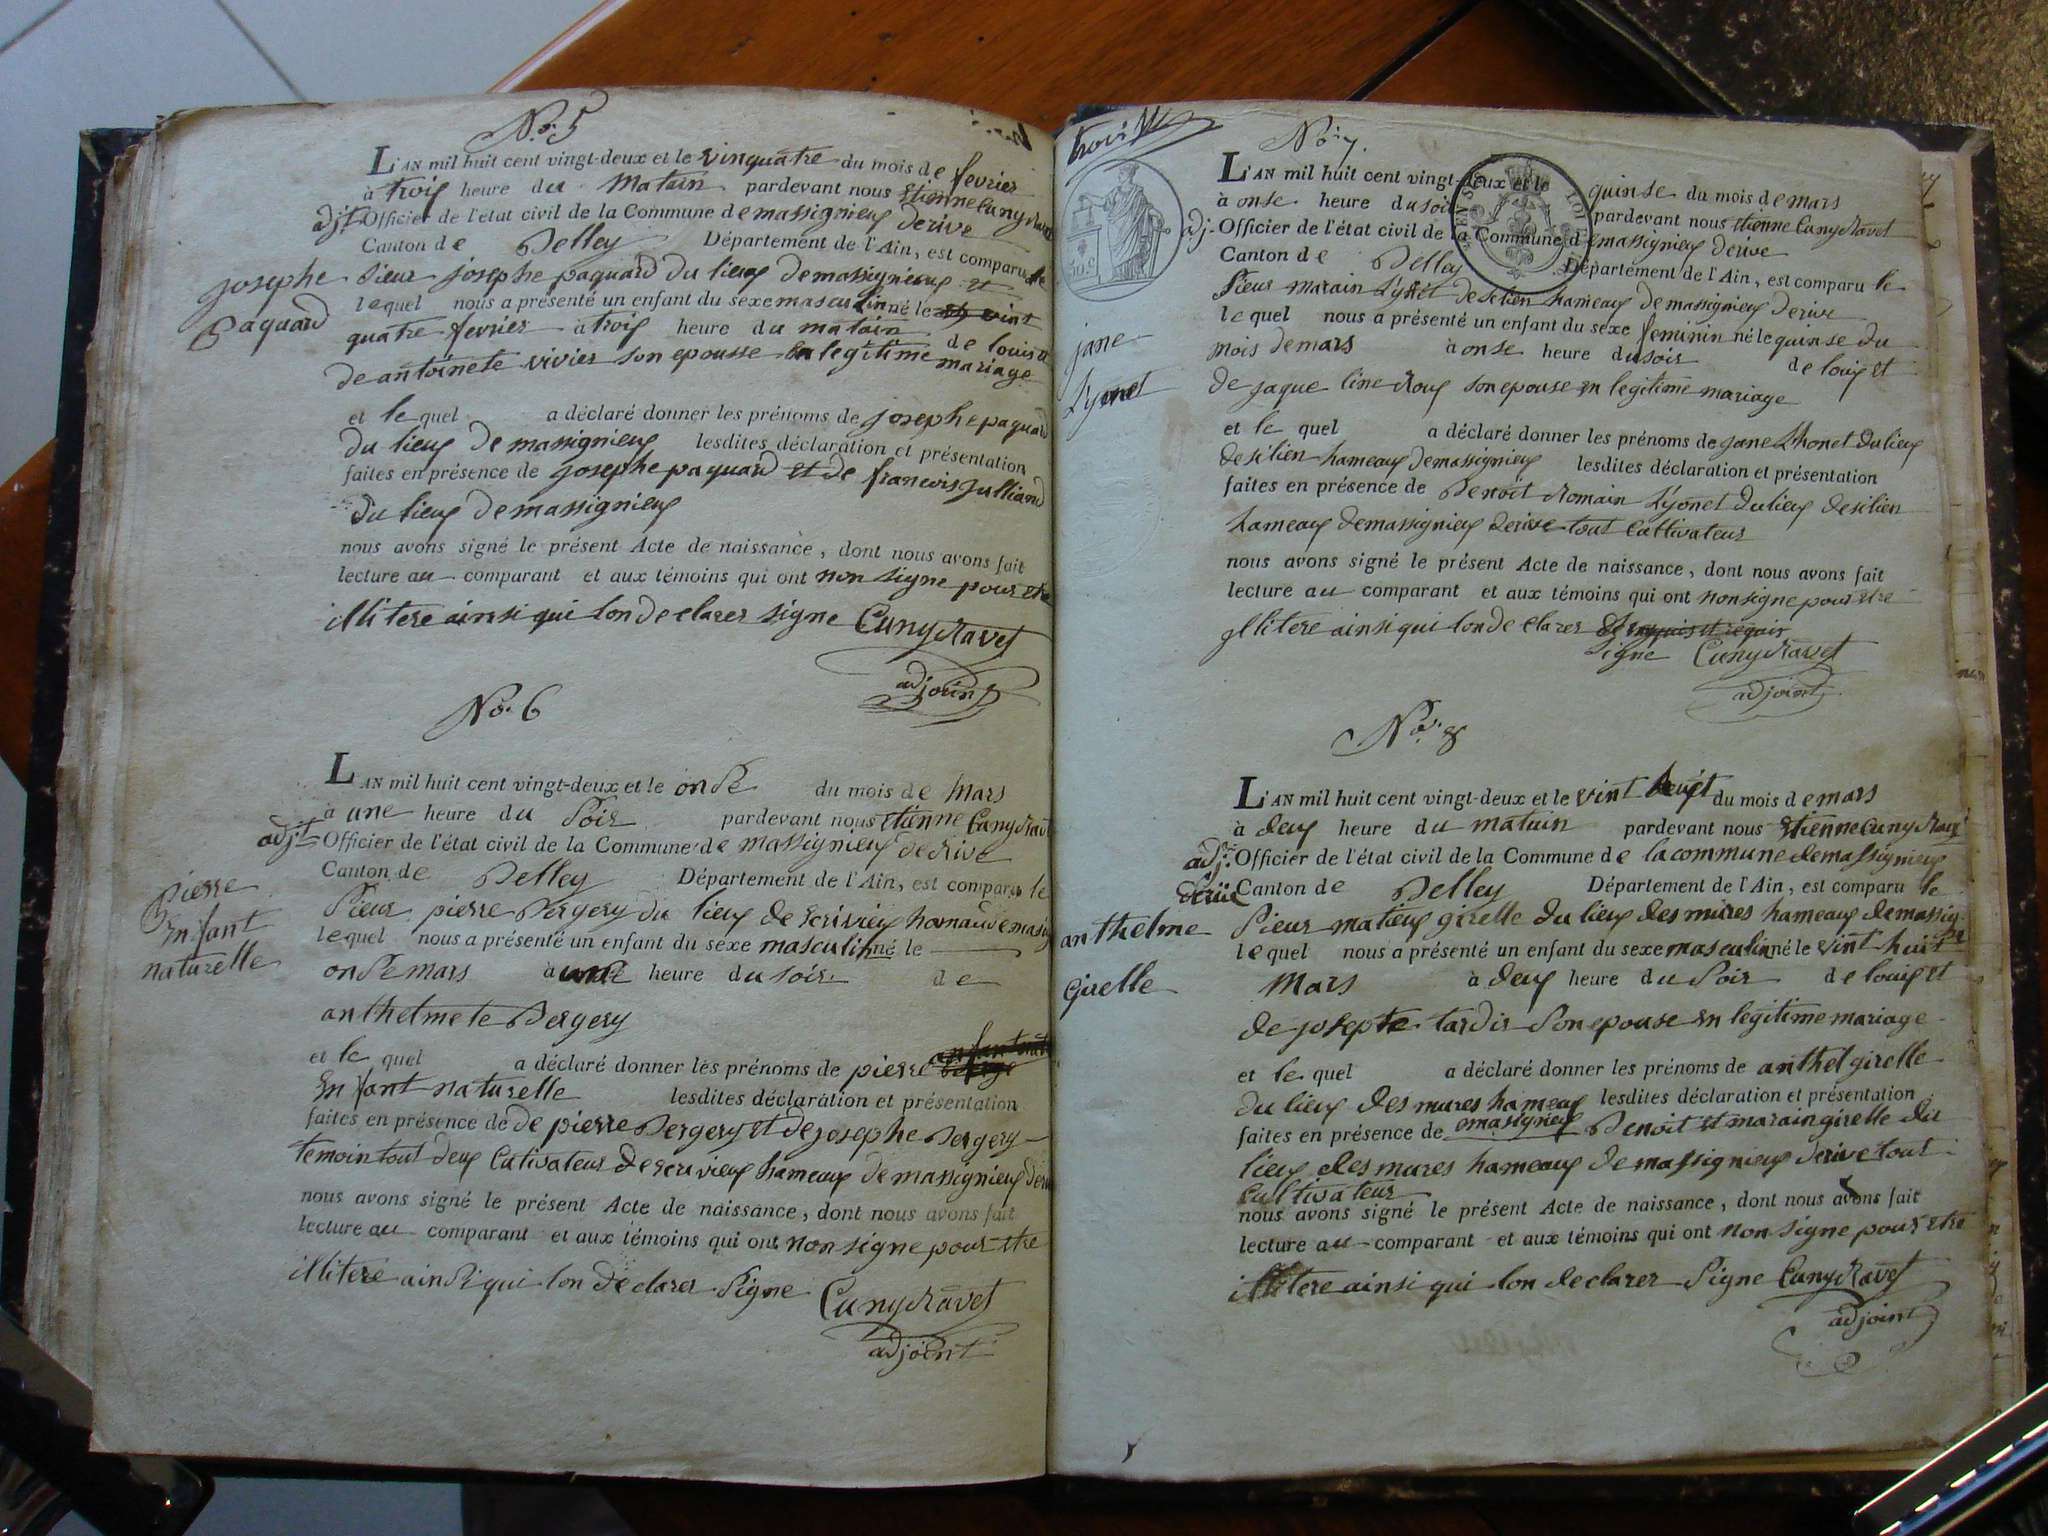 No. 5
L'AN mil huit cent vingt-deux et le vinquatre du mois de fevrier
à trois heure du Matain pardevant nous Etienne Cuny Ravet
adjt Officier de l'état civil de la Commune de massignieux derive
Canton de Belley Département de l'Ain, est comparu le
josephe
paquard
sieur josephe paquard du lieux de massignieux et
lequel nous a présenté un enfant du sexe masculin né le vint
quatre fevrier à trois heure du matain de louis et
de antoinete vivier son epousse en legitime mariage
et le quel a déclaré donner les prénoms de josephe paquard
du lieux de massignieux lesdites déclaration et présentation
faites en présence de josephe paquard et de francois julliand
du lieux de massignieux
nous avons signé le présent Acte de naissance, dont nous avons fait
lecture au comparant et aux témoins qui ont non signe pour etre
illitere ainsi qui lon de clarer signe Cuny Ravet
adjoint
No. 6
L'AN mil huit cent vingt-deux et le onse du mois de Mars
à une heure du soir pardevant nous etienne Cuny Ravet
adjt Officier de l'état civil de la Commune de massignieux de Rive
Canton de Belley Département de l'Ain, est comparu le
pierre
Enfant
naturelle
sieur pierre Bergery du lieux de
lequel nous a présenté un enfant du sexe masculin né le
onse mars à une heure du soir de
anthelmete Bergery
et le quel a déclaré donner les prénoms de pierre
Enfant naturelle lesdites déclaration et présentation
faites en présence de de pierre Bergery et de josephe Bergery
temoin tout deux Cutivateur de hameaux de massignieux derive
nous avons signé le présent Acte de naissance, dont nous avons fait
lecture au comparant et aux témoins qui ont non signe pour etre
illitere ainsi qui lon de clarer signe Cuny Ravet
adjoint
trois
No. 7.
L'AN mil huit cent vingt-deux et le quinse du mois de mars
à onse heure du soir pardevant nous etienne Cuny Ravet
adj. Officier de l'état civil de la Commune de massignieux derive
Canton de Belley Département de l'Ain, est comparu le
sieur marain Lyonet de silien hameaux de massignieux derive
lequel nous a présenté un enfant du sexe feminin né le quinse du
jane
Lyonet
mois de mars à onse heure du soir de louis et
de jaque line Roux son epouse en legitime mariage
et le quel a déclaré donner les prénoms de jane Lhonet du lieux
de silien hameaux de massignieux lesdites déclaration et présentation
faites en présence de Benoit Romain Lyonet du lieux de silien
hameaux de massignieux derive tout Cattivateur
nous avons signé le présent Acte de naissance, dont nous avons fait
lecture au comparant et aux témoins qui ont non signe pour etre
illitere ainsi qui lon de clarer
signe Cuny Ravet
adjoint
No. 8
L'AN mil huit cent vingt-deux et le vint huit du mois de mars
à deux heure du matain pardevant nous Etienne Cuny Ravet
adj. Officier de l'état civil de la Commune de la commune de massignieux
derive Canton de Belley Département de l'Ain, est comparu le
anthelme
Girelle
sieur matieux girelle du lieux des mures hameaux de massig
lequel nous a présenté un enfant du sexe masculin né le vint huit
Mars à deux heure du soir de louis et
de josepte tardir son epouse en legitime mariage
et le quel a déclaré donner les prénoms de anthel girelle
du lieux des mures hameux lesdites déclaration et présentation
faites en présence de emasignieux Benoit et marain girelle du
lieux des mures hameaux de massignieux derive tout
Cultivateur
nous avons signé le présent Acte de naissance, dont nous avons fait
lecture au comparant et aux témoins qui ont non signe pour etre
illitere ainsi qui lon declarer signe Cuny Ravet
adjoint